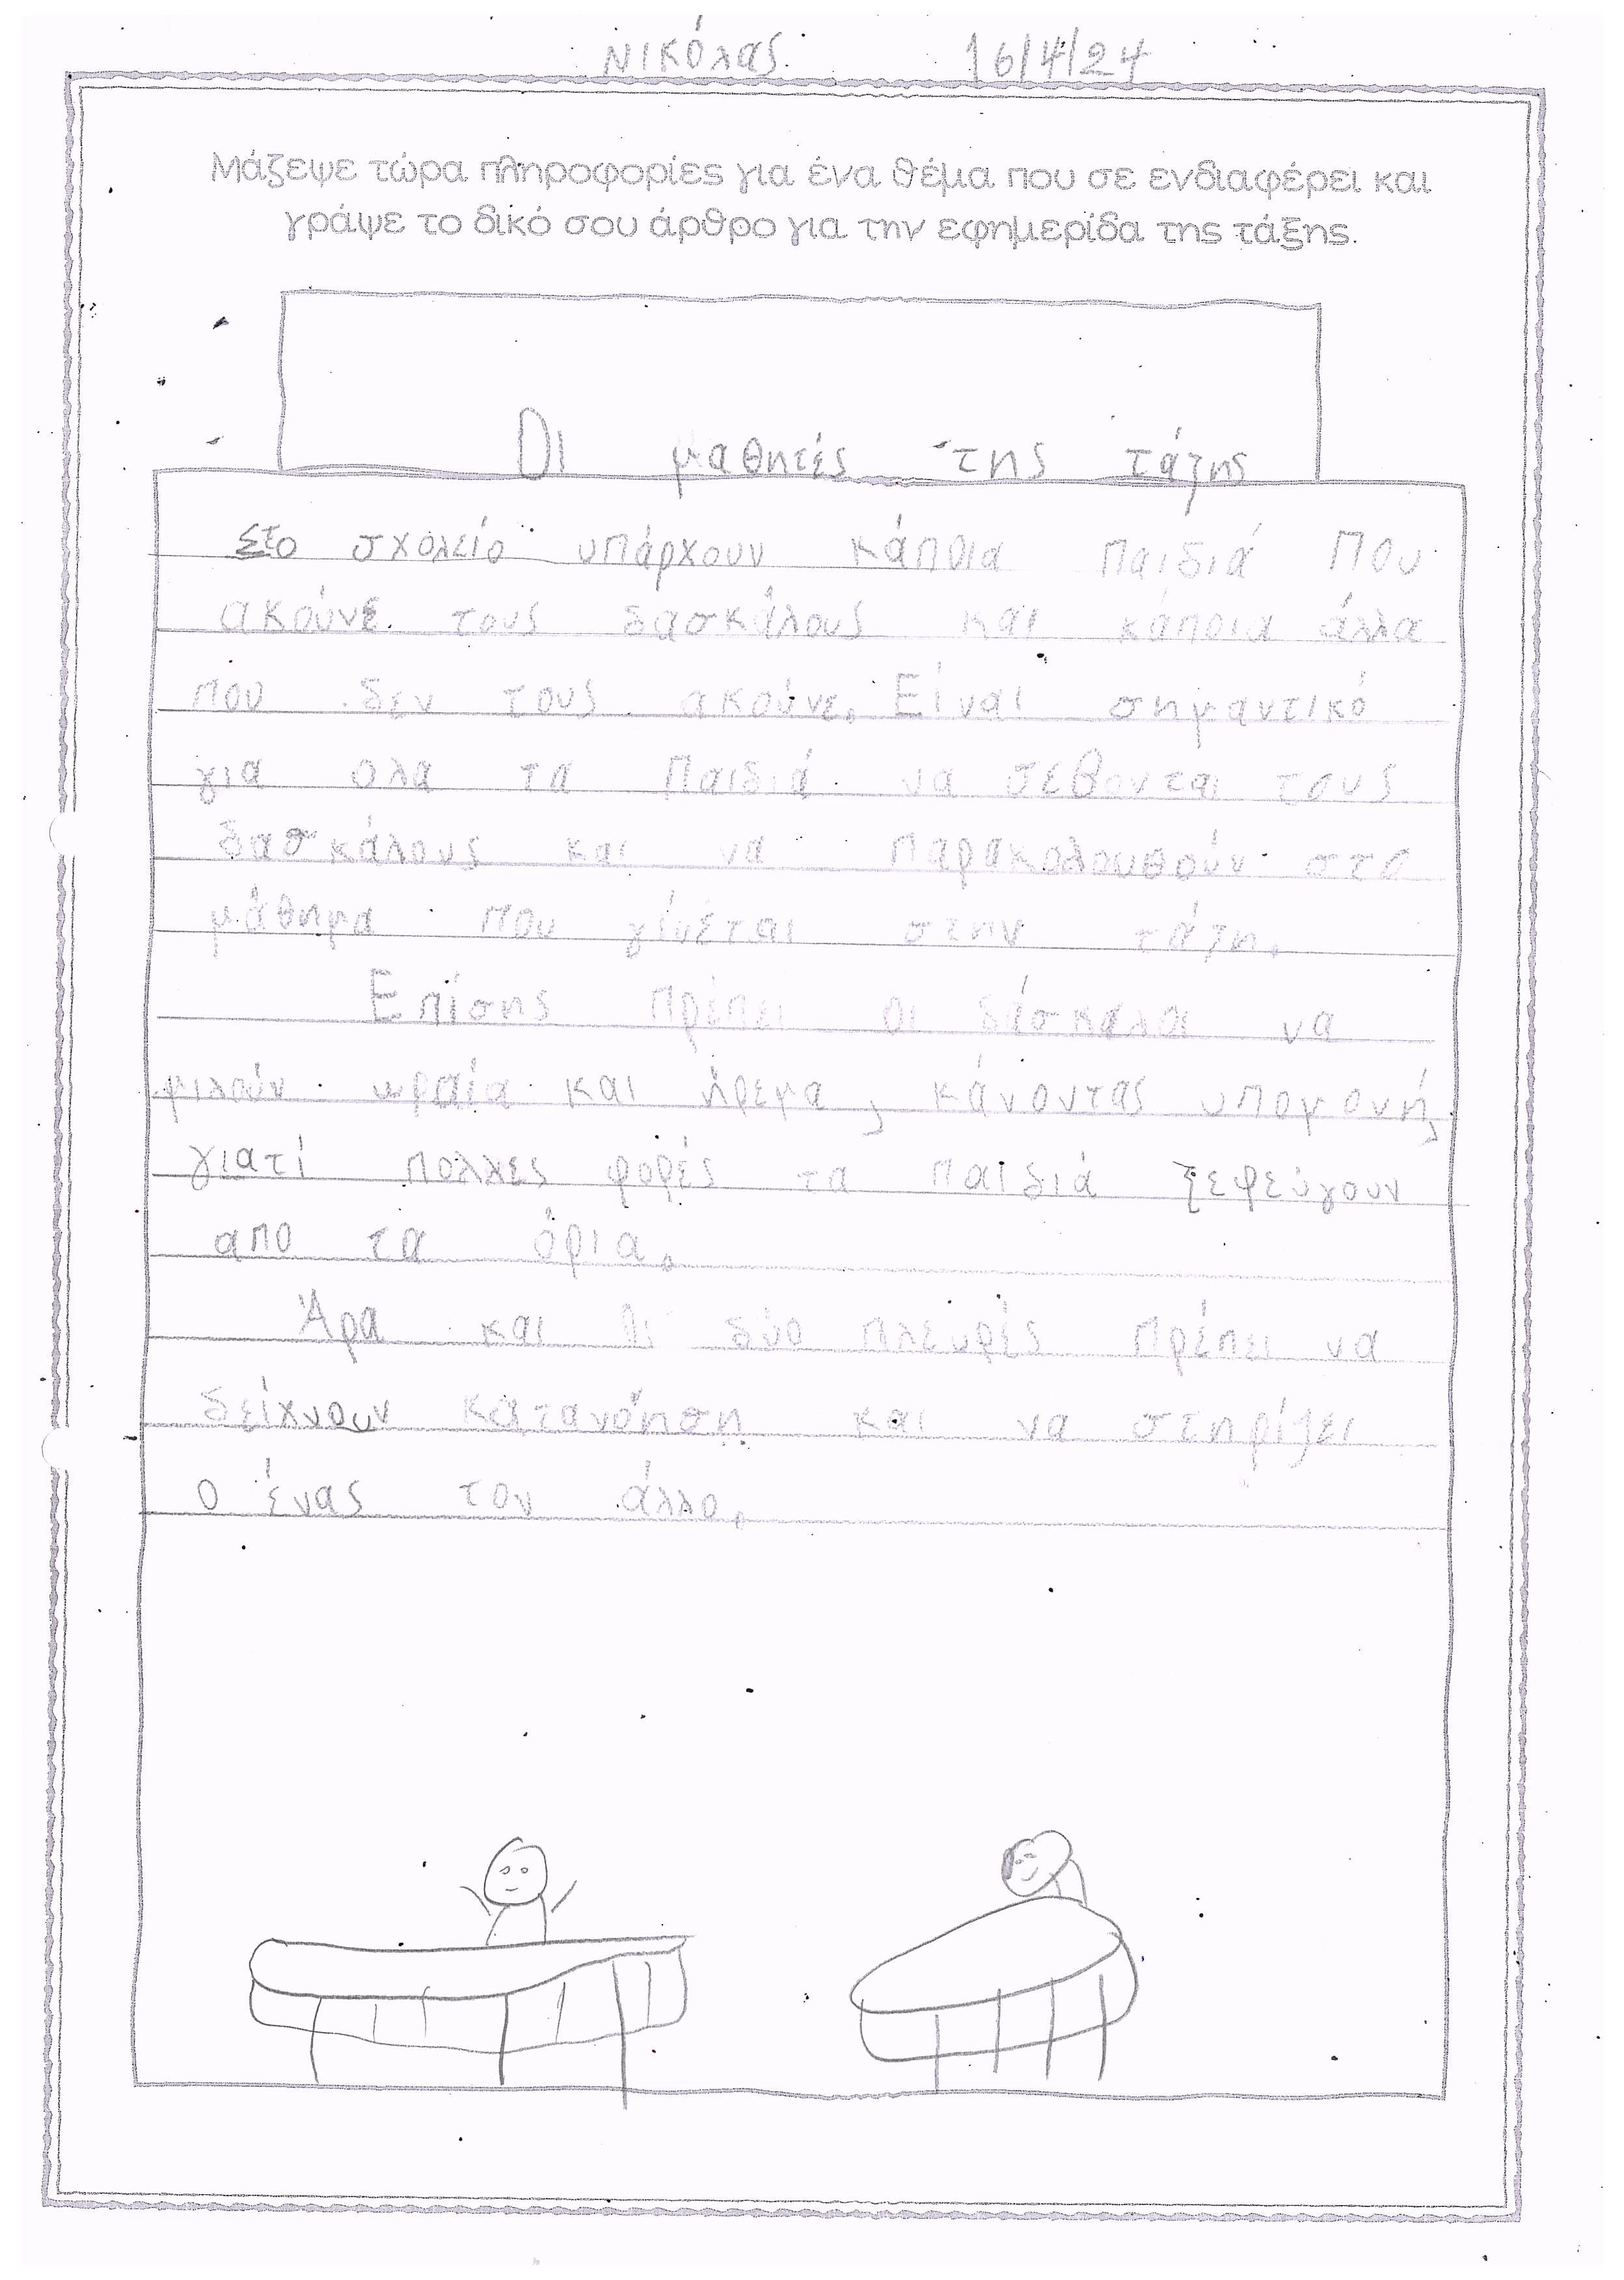 Νικόλας 16/4/24
Μάζεψε τώρα πληροφορίες για ένα θέμα που σε ενδιαφέρει και
γράψε το δικό σου άρθρο για την εφημερίδα της τάξης.
Οι μαθητές της τάξης
Στο σχολείο υπάρχουν κάποια παιδιά που
ακούνε τους δασκάλους και κάποια άλλα
που δεν τους ακούνε. Είναι σημαντικό
για ολα τα παιδιά να σέβονται τους
δασκάλους και να παρακολουθούν στο
μάθημα που γίνεται στην τάξη.
Επίσης πρέπει οι δάσκαλοι να
μιλούν ωραία και ήρεμα, κάνοντας υπομονή,
γιατί πολλες φορές τα παιδιά ξεφεύγουν
απο τα όρια.
Άρα και οι δύο πλευρές πρέπει να
δείχνουν κατανόηση και να στηρίζει
ο ένας τον άλλο.